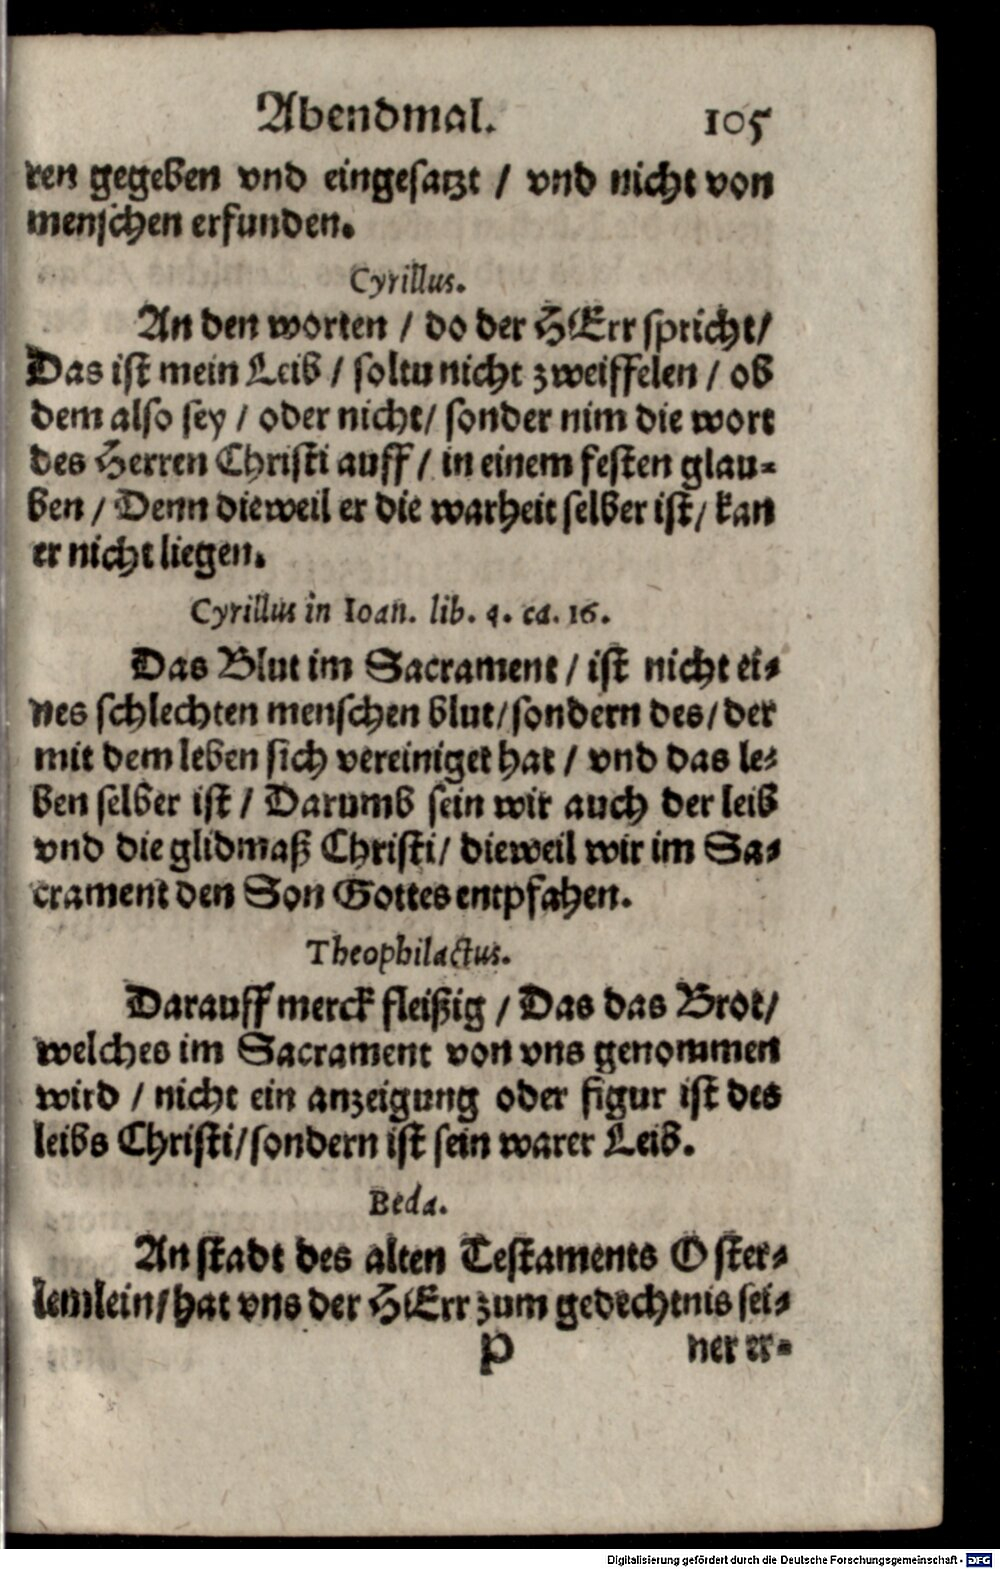 Abendmal. 105
ren gegeben vnd eingesatzt / vnd nicht von
menschen erfunden.
Cyrillus.
An den worten / do der HErr spricht/
Das ist mein Leib / soltu nicht zweiffelen / ob
dem also sey / oder nicht/ sonder nim die wort
des Herren Christi auff / in einem festen glau-
ben / Denn dieweil er die warheit selber ist/ kan
er nicht liegen.
Cyrillus in Ioan. lib. 4. ca. 16.
Das Blut im Sacrament / ist nicht ei-
nes schlechten menschen blut/ sondern des/ der
mit dem leben sich vereiniget hat / vnd das le-
ben selber ist / Darumb sein wir auch der leib
vnd die glidmaß Christi/ dieweil wir im Sa-
crament den Son Gottes entpfahen.
Theophilactus.
Darauff merck fleißig / Das das Brot/
welches im Sacrament von vns genommen
wird / nicht ein anzeigung oder figur ist des
leibs Christi/ sondern ist sein warer Leib.
Beda.
An stadt des alten Testaments Oster-
lemlein/ hat vns der HErr zum gedechtnis sei-
P ner er-
Digitalisierung gefördert durch die Deutsche Forschungsgemeinschaft - DFG